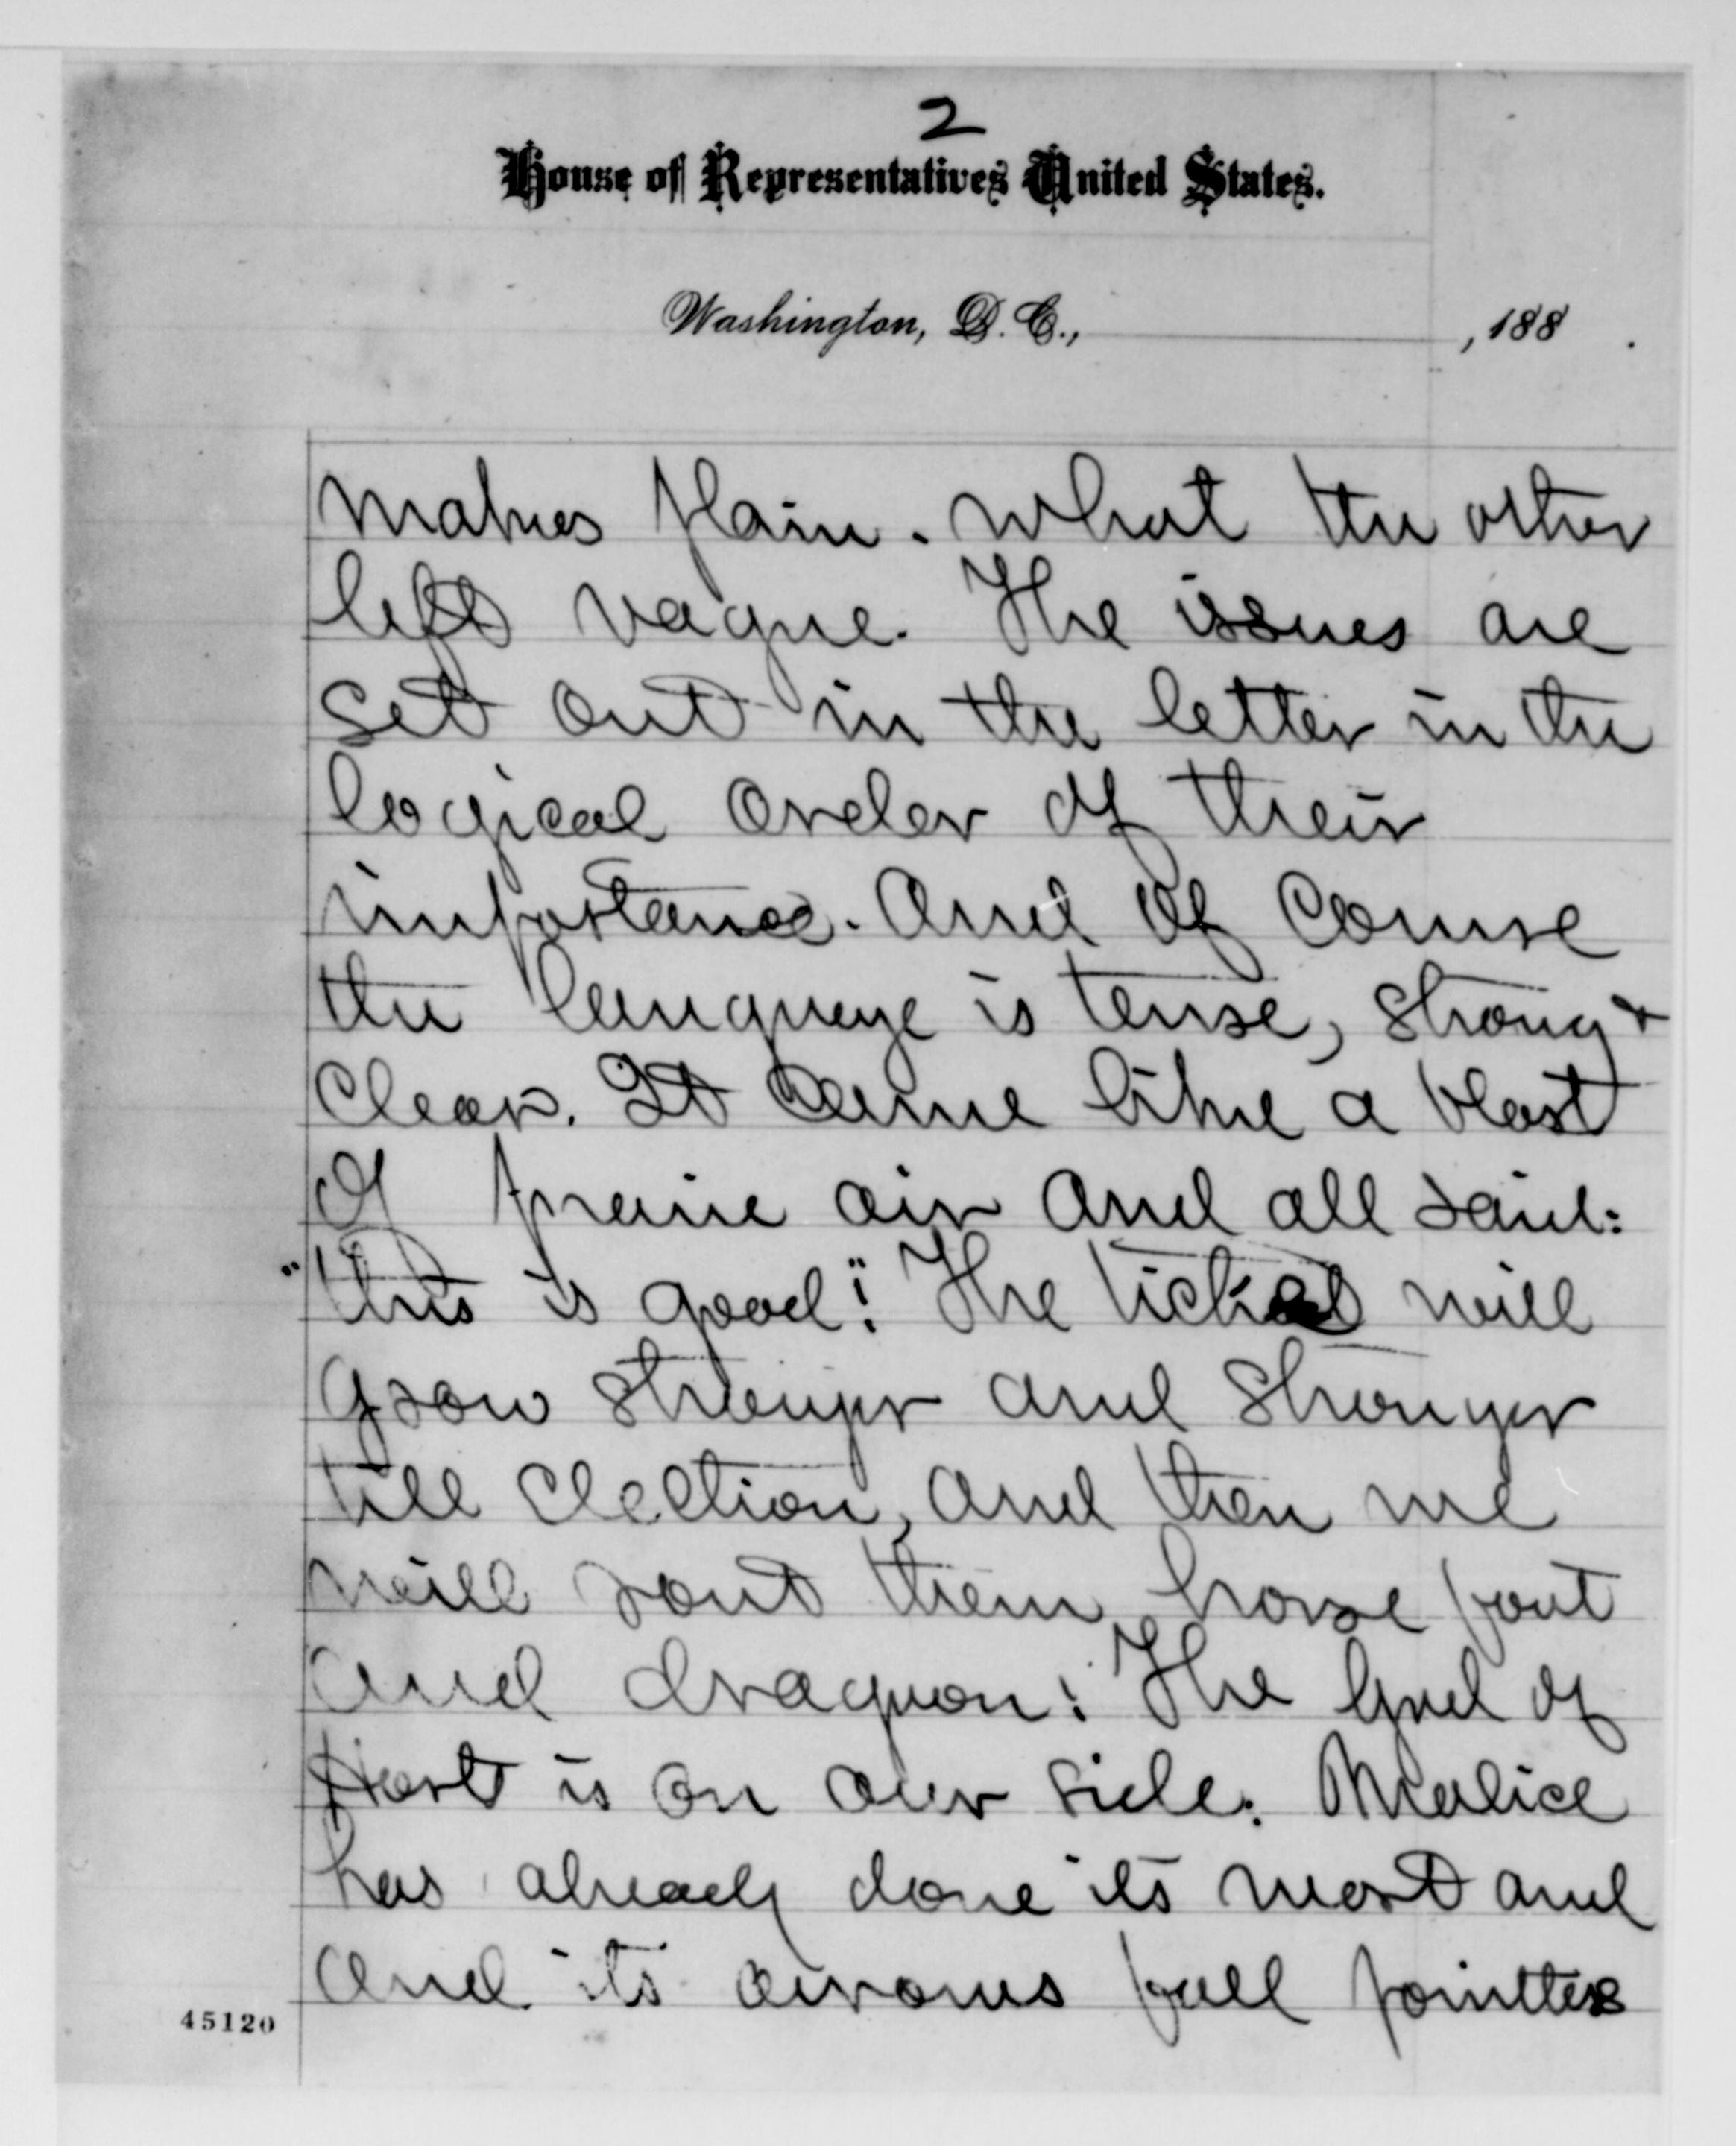 2
House of Representatives United States.
Washington, D. C., , 188 .
makes plain. what the other
left vague. The issues are
set out in the letter in the
logical order of their
importance. And of course
the language is terse, strong &
clear. It came like a blast
of prairie air and all said:
"this is good"! The ticket will
grow stronger and stronger
till election, and then we
will rout them horse foot
and dragoon! The God of
Host is on our side. Malice
has already done its most and
and its arrows fall pointless
45120